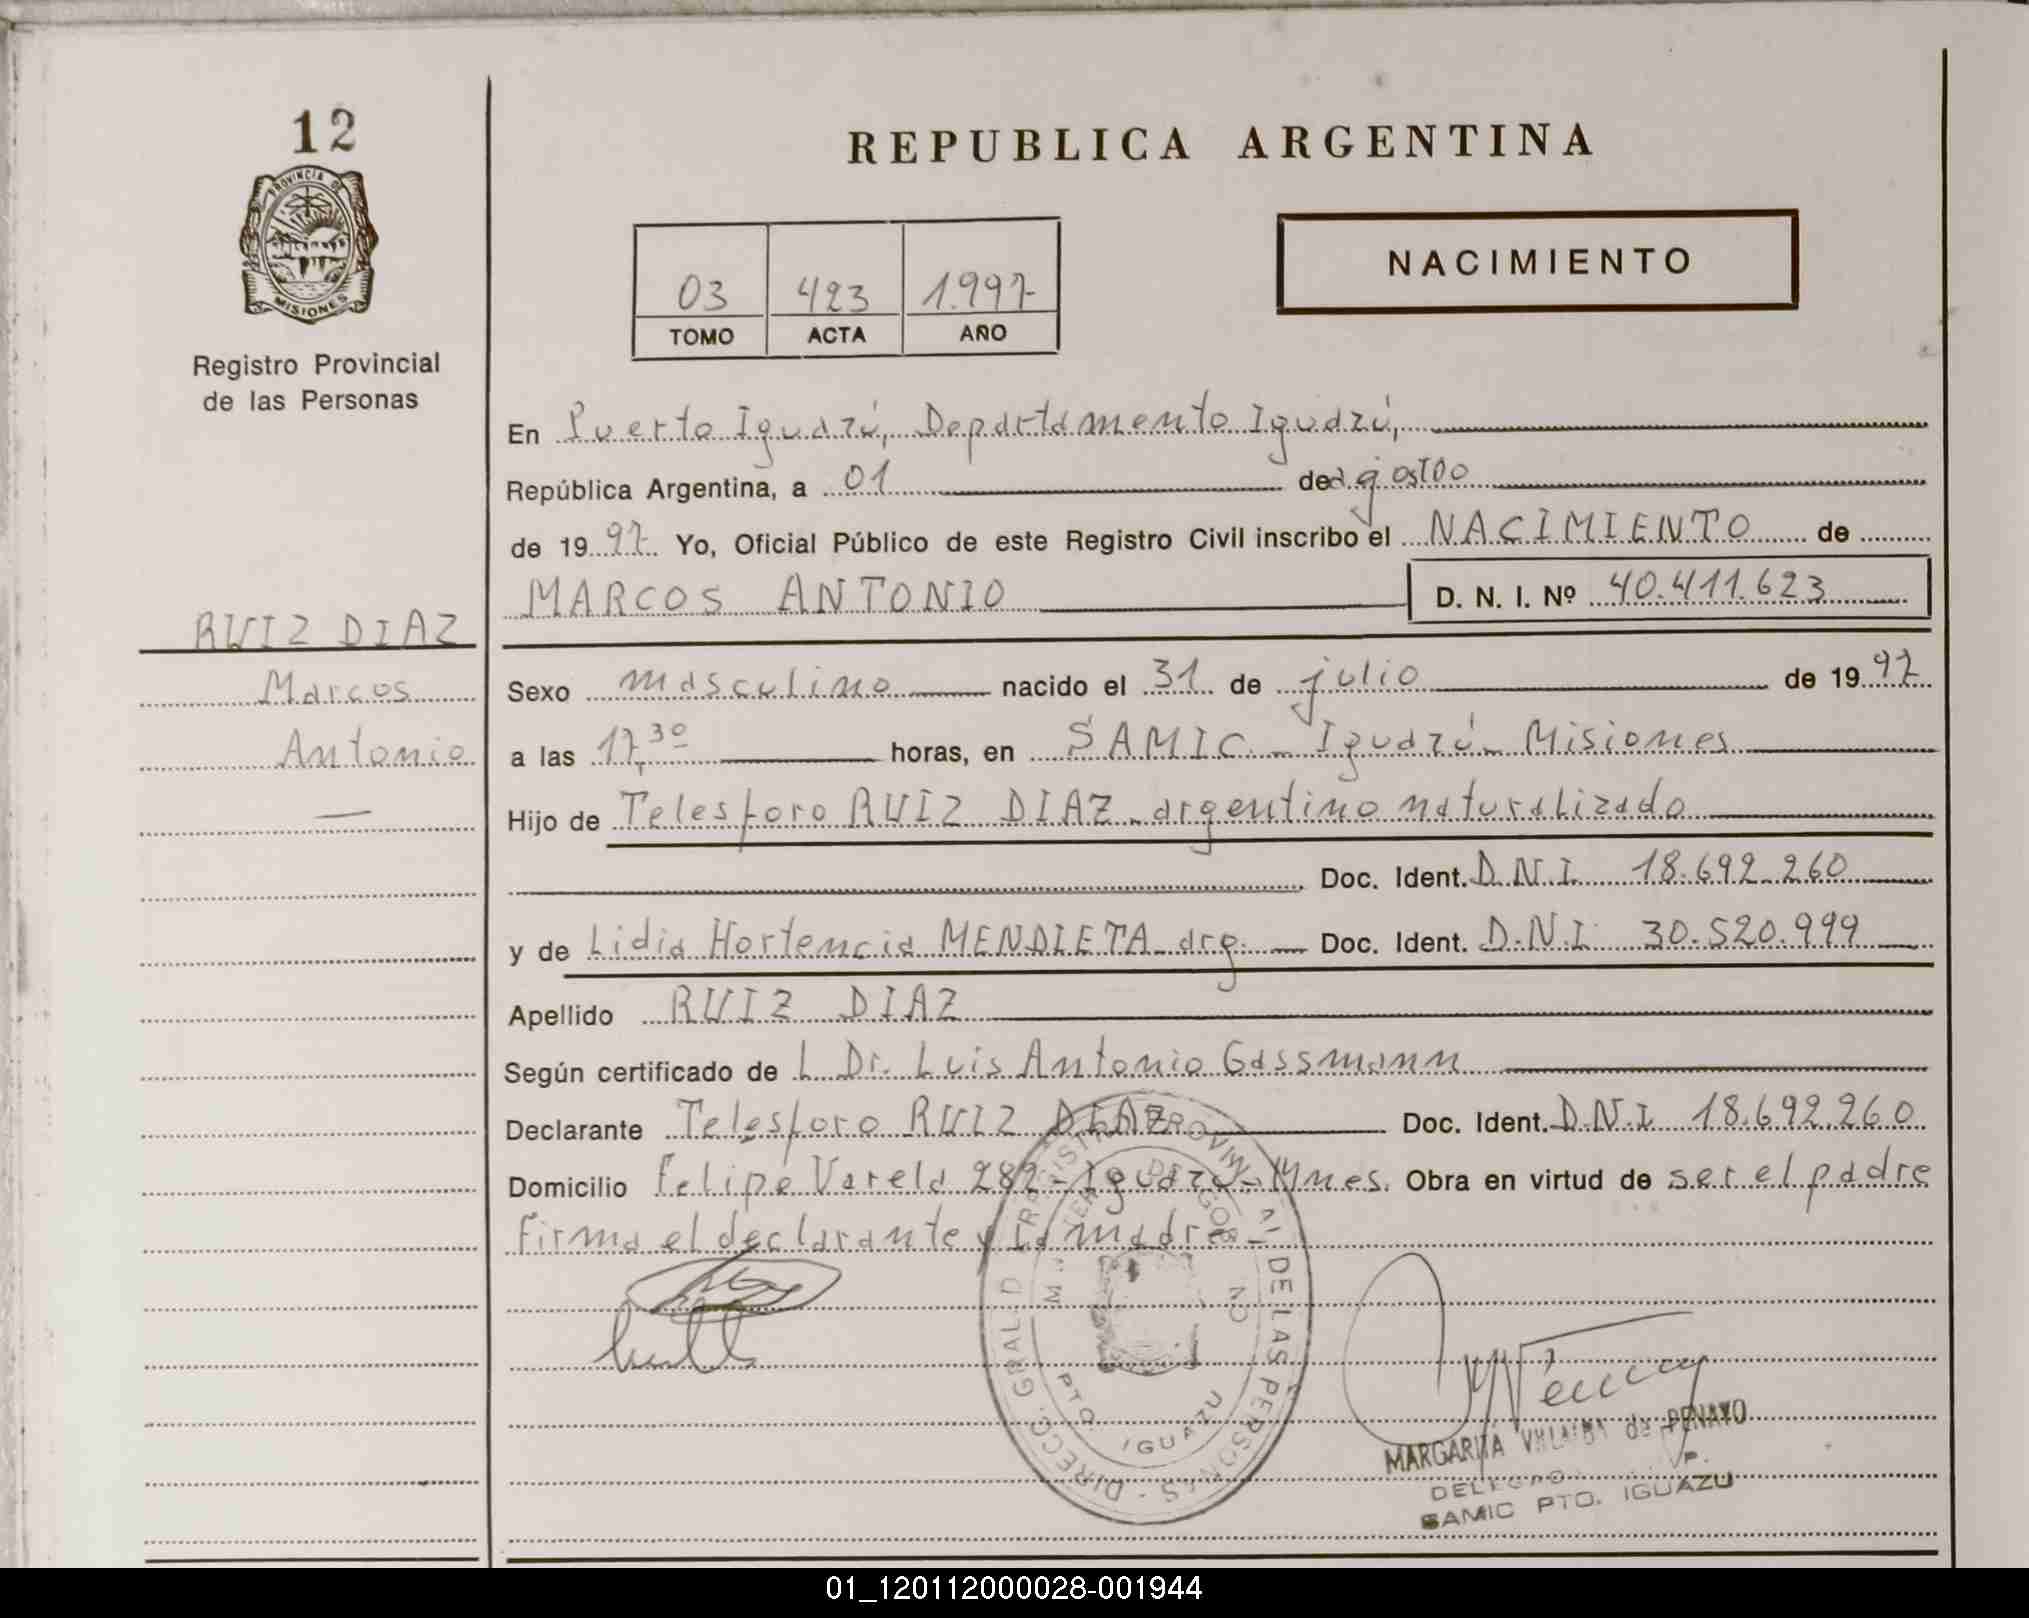 12
PROVINCIA DE
MISIONES
Registro Provincial
de las Personas
RUIZ DIAZ
Marcos
Antonio
—
REPUBLICA ARGENTINA
NACIMIENTO
03 423 1.997
TOMO ACTA AÑO
En Puerto Iguazú, Departamento Iguazú,
República Argentina, a 01 de agostoo
de 1997 Yo, Oficial Público de este Registro Civil inscribo el NACIMIENTO de
MARCOS ANTONIO D. N. I. Nº 40.411.623
Sexo masculino nacido el 31 de julio de 1997
a las 17,30 horas, en SAMIC - Iguazú - Misiones
Hijo de Telesforo RUIZ DIAZ - argentino naturalizado
Doc. Ident. D.N.I 18.692.260
y de Lidia Hortencia MENDIETA - arg. Doc. Ident. D.N.I. 30.520.999
Apellido RUIZ DIAZ
Según certificado de L Dr. Luis Antonio Gassmann
Declarante Telesforo RUIZ DIAZ Doc. Ident. D.N.I 18.692.260
Domicilio Felipe Varela 282 - Iguazú - Mnes. Obra en virtud de ser el padre
Firma el declarante y la madre -
DIRECC. GRAL. D REGISTRO PROVIN AL DE LAS PERSONAS
PTO. IGUAZU
MARGARITA VILLALBA de PENAYO
SAMIC PTO. IGUAZU
01_120112000028-001944